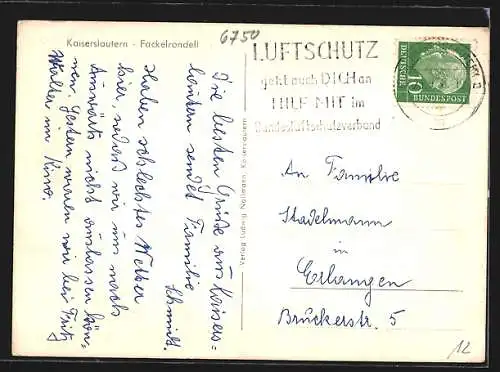 Kaiserslautern - Fackelrondell
6750
LUFTSCHUTZ
geht auch DICH an
HILF MIT im
Bundesluftschutzverband
DEUTSCHE
BUNDESPOST
10
Die besten Grüße aus Kaisers-
lautern sendet Familie
Schmidt.
Haben schlechtes Wetter
hier, sodaß wir uns nach
Auswärts nicht auslassen kön-
nen. Gestern waren wir bei Fritz
Walter im Kino.
Verlag Ludwig Kaiserslautern
An Familie
Stadelmann
in
Erlangen
Bruckerstr. 5
12